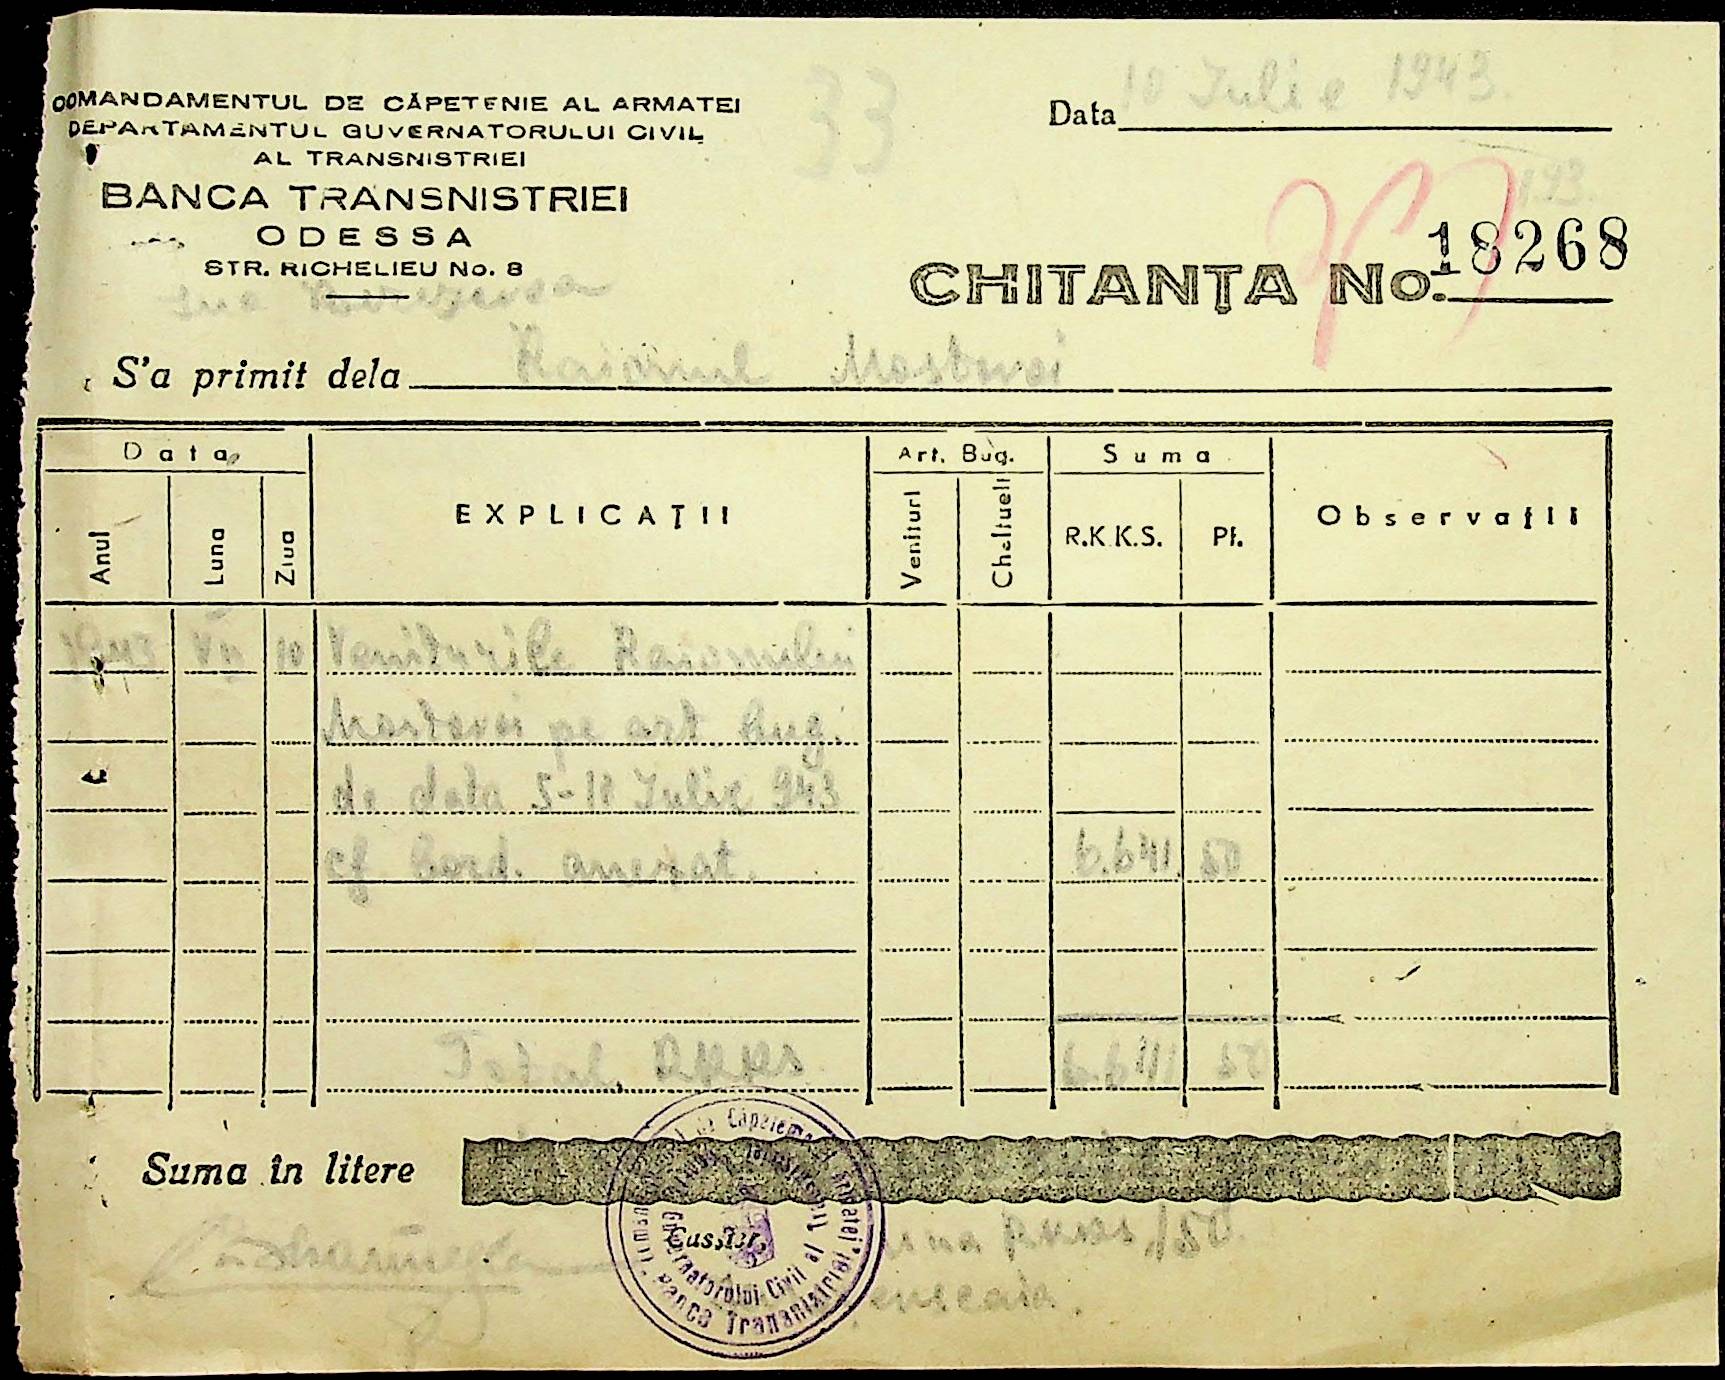 COMANDAMENTUL DE CĂPETENIE AL ARMATEI
DEPARTAMENTUL GUVERNATORULUI CIVIL
AL TRANSNISTRIEI
BANCA TRANSNISTRIEI
ODESSA
STR. RICHELIEU No. 8
33
Data 10 Iulie 1943.
193.
CHITANȚA No. 18268
S'a primit dela Raionul Mostovoi
Data
Anul
Luna
Ziua
EXPLICAȚII
Art. Bug.
Venituri
Cheltueli
Suma
R.K.K.S.
Pf.
Observații
1943 VII 10 Veniturile Raionului
Mostovoi pe art bug.
de data 5-10 Iulie 943
cf bord. anexat. 6.641. 50
Total RKKS 6.641 50
Suma în litere
Casier,
RKKS /50.
Comandamentul de Căpetenie al Armatei
Guvernatorului Civil al Transnistriei
Banca Transnistriei